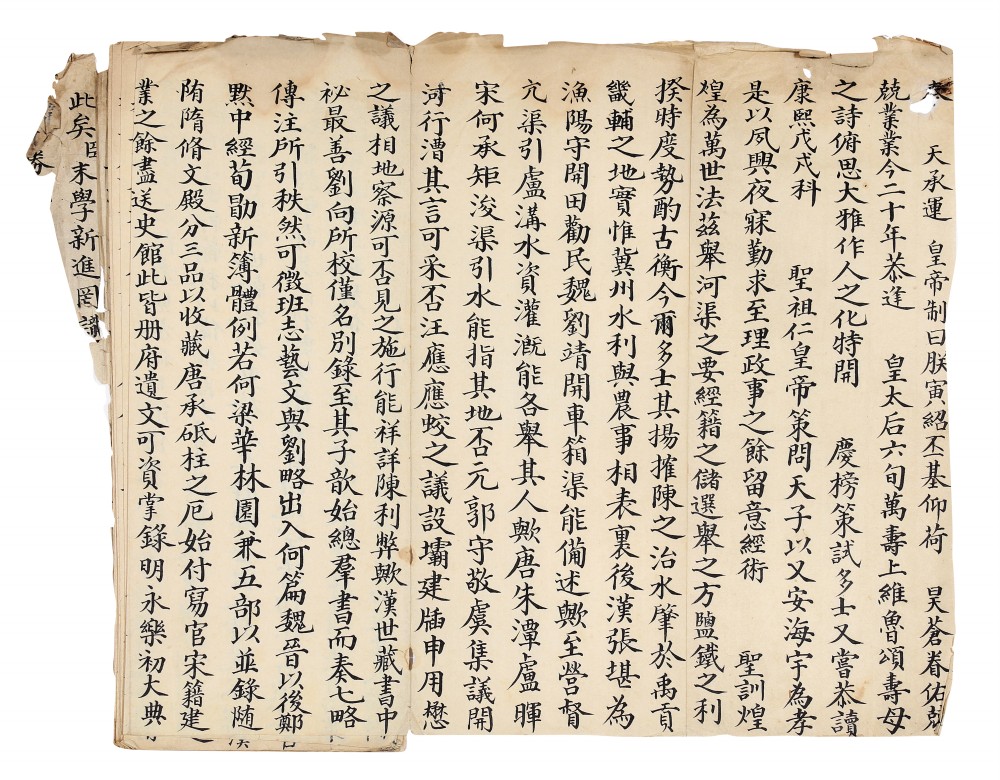 奉　天承運　皇帝制曰朕寅紹丕基仰荷　昊蒼眷佑兢
兢業業今二十年恭逢　皇太后六旬萬壽上維魯頌壽母
之詩俯思大雅作人之化特開　慶榜策試多士又嘗恭讀
康熙戊戌科　聖祖仁皇帝策問天子以乂安海宇為孝
是以夙興夜寐勤求至理政事之餘留意經術　聖訓煌
煌為萬世法茲舉河渠之要經籍之儲選舉之方鹽鐵之利
揆時度勢酌古衡今爾多士其揚搉陳之治水肇於禹貢
畿輔之地實惟冀州水利與農事相表裏後漢張堪為
漁陽守開田勸民魏劉靖開車箱渠能備述歟至營督
亢渠引盧溝水資灌溉能各舉其人歟唐朱潭盧暉
宋何承矩浚渠引水能指其地否元郭守敬虞集議開
河行漕其言可采否汪應應蛟之議設壩建牐申用懋
之議相地察源可否見之施行能祥詳陳利弊歟漢世藏書中
祕最善劉向所校僅名別錄至其子歆始總羣書而奏七略
傳注所引秩然可徵班志藝文與劉略出入何篇魏晉以後鄭
黙中經荀勗新簿體例若何梁華林園兼五部以並錄随
隋隋脩文殿分三品以收藏唐承砥柱之厄始付寫官宋籍建
業之餘盡送史館此皆册府遺文可資掌錄明永樂初大典
此矣臣末學新進罔識